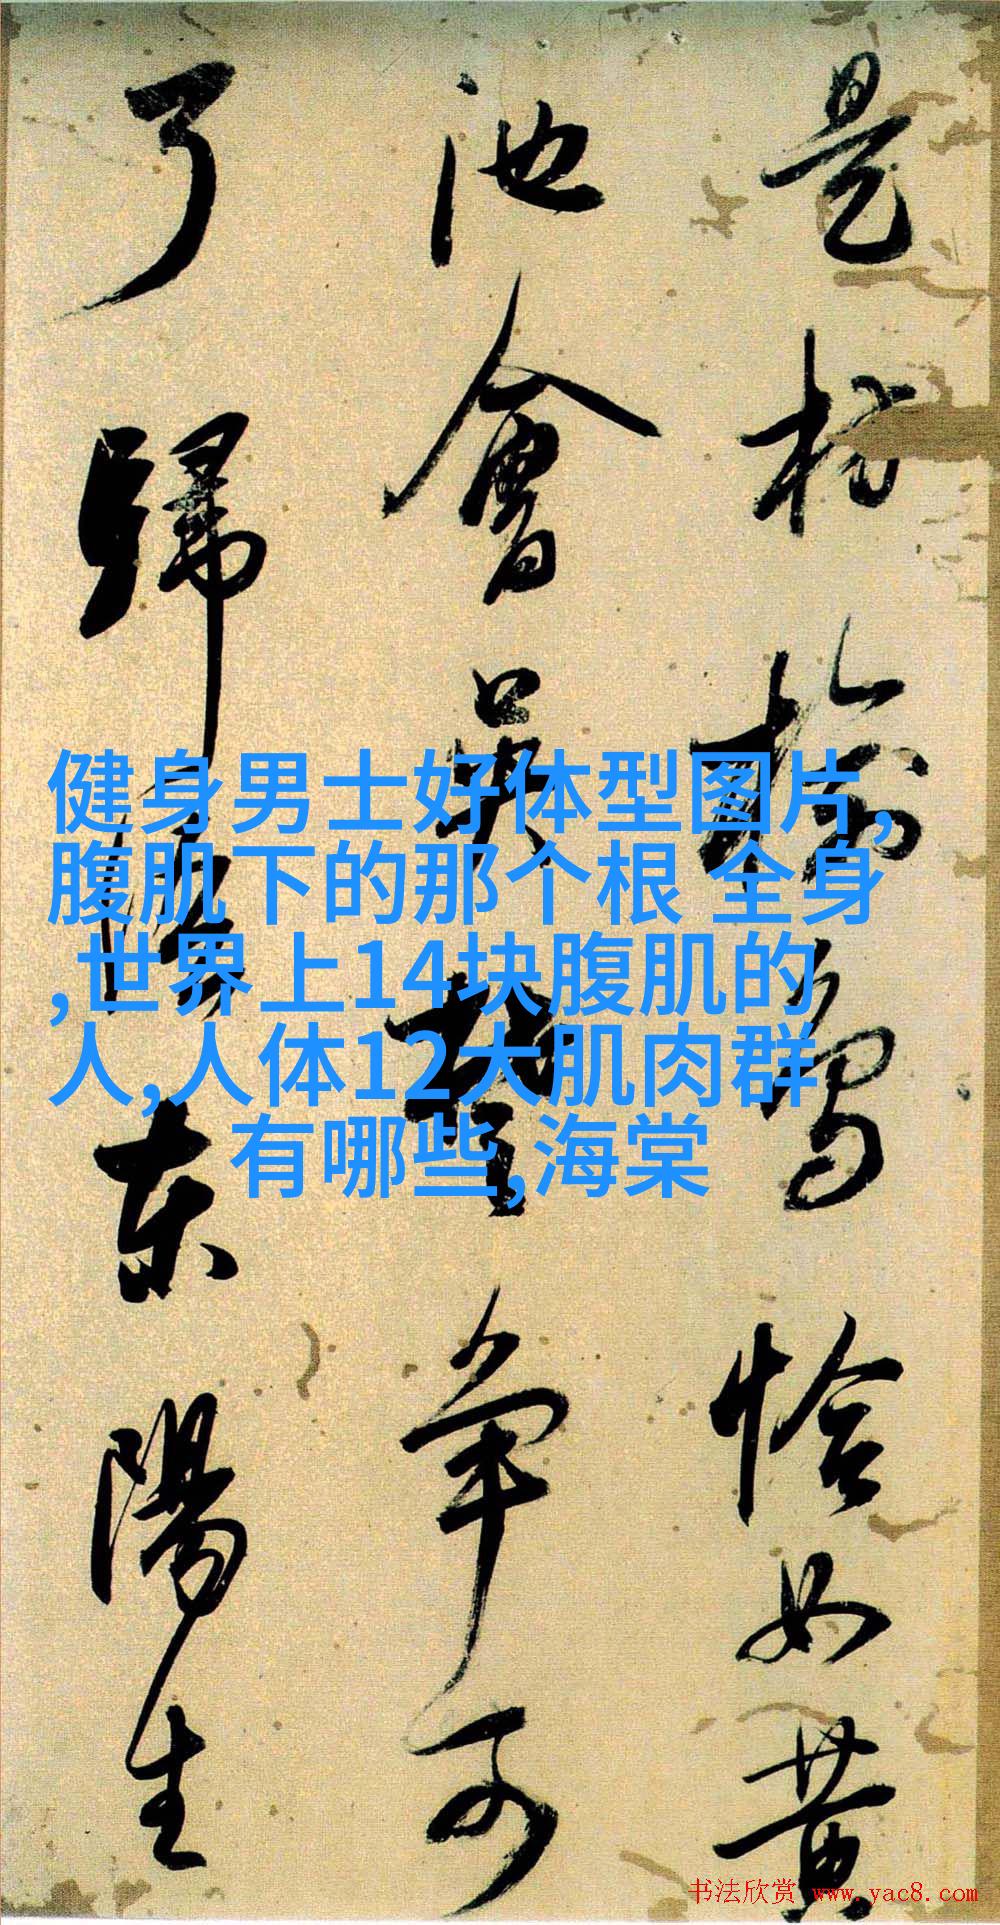 是枋榆寫恰如黄
池會吳楚争可
了歸 东陽生
健身男士好体型图片,
腹肌下的那个根 全身
,世界上14块腹肌的
人,人体12大肌肉群
有哪些,海棠
书法欣赏 www.yac8.com